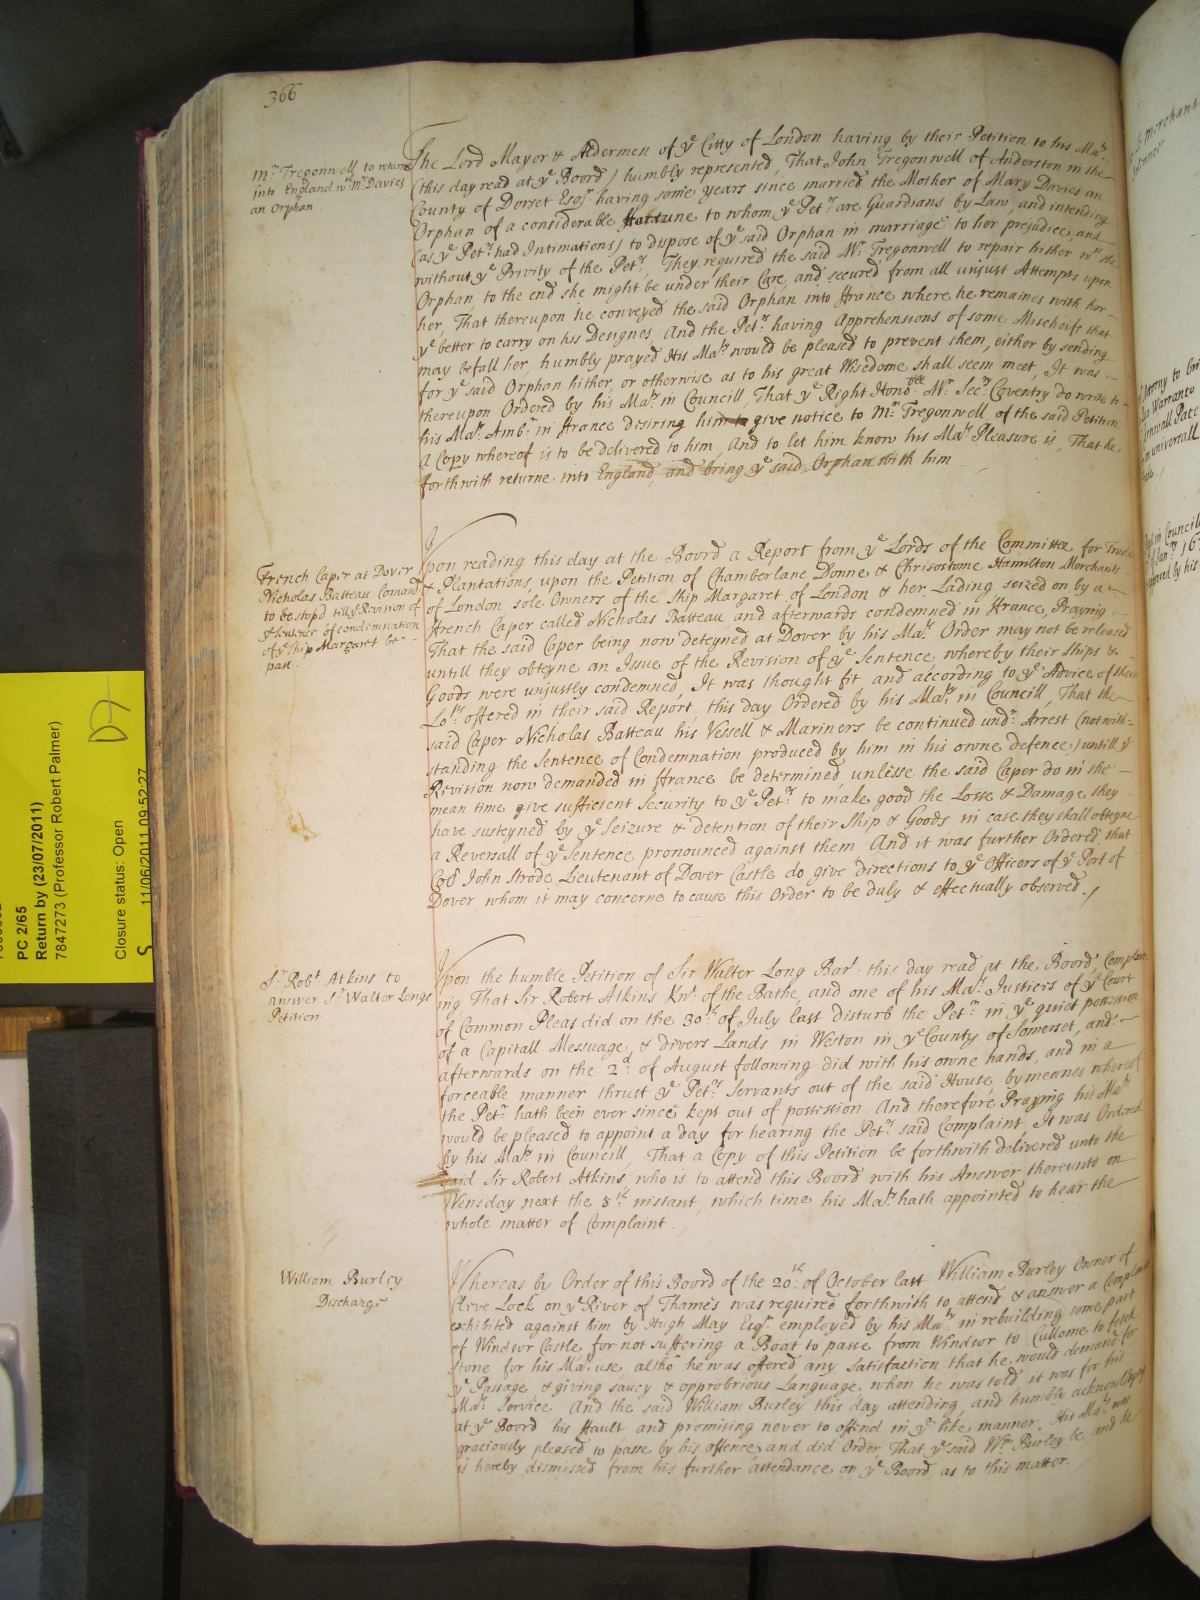 366
Mr. Tregonwell to returne
into England wth Mrs Davies
an Orphan
The Lord Mayor & Aldermen of ye Citty of London having by their Petition to his Maty
(this day read at ye Board) humbly represented, That John Tregonwell of Anderston in the
County of Dorset Esqr having some years since married the Mother of Mary Davies an
Orphan of a considerable ffortune to whom ye Petrs are Guardians by Law, and intending
(as ye Petrs had Intimations) to dispose of ye said Orphan in marriage to her prejudice, and
without ye Privity of the Petrs, They required the said Mr. Tregonwell to repair hither wth the
Orphan, to the end she might be under their Care, and secured from all unjust Attempts upon
her, That thereupon he conveyed the said Orphan into ffrance where he remaines with her
ye better to carry on his Designes, And the Petrs having Apprehensions of some Mischeifs that
may befall her, humbly prayed His Maty would be pleased to prevent them, either by sending
for ye said Orphan hither, or otherwise as to his great Wisedome shall seem meet, It was
thereupon Ordered by his Maty in Councill, That ye Right Honoble Mr. Secry Coventry do write to
his Mats Ambr in ffrance disiring him to give notice to Mr Tregonwell of the said Petition
A Copy whereof is to be delivered to him, And to let him know his Mats Pleasure is, That he
forthwith returne into England, and bring ye said Orphan with him
French Caper at Dover
Nicholas Batteau Comandr
to be stopd till ye Revision of
ye Sentence of condemnation
of ye Ship Margaret be
past.
Upon reading this day at the Board a Report from ye Lords of the Committee for Trade
& Plantations, upon the Petition of Chamberlane Donne & Chrisostome Hamilton Merchants
of London sole Owners of the Ship Margaret of London & her Lading seized on by a
ffrench Caper called Nicholas Batteau and afterwards condemned in ffrance, Praying
That the said Caper being now deteyned at Dover by his Mats Order may not be released
untill they obteyne an Issue of the Revision of ye Sentence, whereby their Ships &
Goods were unjustly condemned, It was thought fit and according to ye Advice of their
Lops offered in their said Report, this day Ordered by his Maty in Councill, That the
said Caper Nicholas Batteau his Vessell & Mariners be continued undr Arrest (notwith-
standing the Sentence of Condemnation produced by him in his owne defence,) untill ye
Revision now demanded in ffrance be determined, unlesse the said Caper do in the
mean time give sufficient Security to ye Petrs to make good the Losse & Damage, they
have susteyned by ye Seizure & detention of their Ship & Goods in case they shall obteyne
a Reversall of ye Sentence pronounced against them And it was further Ordered, that
Coll John Strode Lieutenant of Dover Castle do give directions to ye Officers of ye Port of
Dover, whom it may concerne to cause this Order to be duly & effectually observed.
Sr Robt Atkins to
answer Sr Walter Longs
Petition
Upon the humble Petition of Sir Walter Long Bart this day read at the Board, Complain
ing That Sir Robert Atkins Knt of the Bathe, and one of his Mats Justicis of ye Court
of Common Pleas did on the 30th of July last disturb the Petr in ye quiet possession
of a Capitall Messuage, & divers Lands in Weston in ye County of Somerset, and
afterwards on the 2d of August following did with his owne hands, and in a
forceable manner thrust ye Petrs Servants out of the said House, by meanes whereof
the Petr hath been ever since kept out of possession And therefore Praying his Maty
would be pleased to appoint a day for hearing the Petrs said Complaint, It was Ordered
by his Maty in Councill, That a Copy of this Petition be forthwith delivered unto the
said Sir Robert Atkins, who is to attend this Board with his Answer thereunto on
Wensday next the 8th instant, which time his Maty hath appointed to hear the
whole matter of Complaint.
William Burley
Discharge
Whereas by Order of this Board of the 20th of October last William Burley Owner of
Clive Lock on ye River of Thames was required forthwith to attend & answer a Complaint
exhibited against him by Hugh May Esqr employed by his Maty in rebuilding some part
of Windsor Castle, for not suffering a Boat to passe from Windsor to Cullome to fetch
stone for his Mats use, altho he was offered any Satisfaction that he would demand for
ye Passage, & giving saucy & opprobrious Language, when he was told it was for his
Mats Service And the said William Burley this day attending, and humbly acknowledging
at ye Board his ffault, and promising never to offend in ye like manner, His Maty was
graciously pleased to passe by his offence, and did Order, That ye said Wm. Burley be, and he
is hereby dismissed from his further attendance on ye Board as to this matter.
PC 2/65
Return by (23/07/2011)
7847273 (Professor Robert Palmer)
Closure status: Open
S 11/06/2011 09:52:27
D7